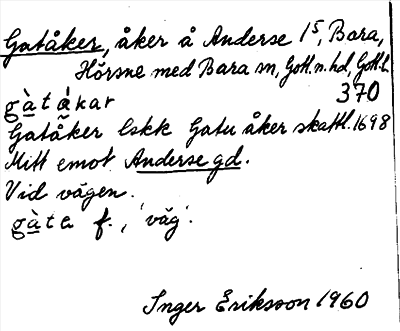 Gatåker, åker å Anderse 1⁵, Bara,
Hörsne med Bara sn, Gotl. n. hd, Gotl. l.
370
gàtákar
Gatåker lskk Gatu åker skattl. 1698
Mitt emot Anderse gd.
Vid vägen.
gàta f., 'väg'.
Inger Eriksson 1960